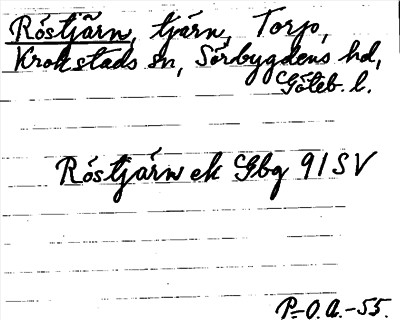 Röstjärn, tjärn, Torp,
Krokstads sn, Sörbygdens hd,
Göteb. l.
Röstjärn ek Gbg 91 SV
P-O.A.-55.